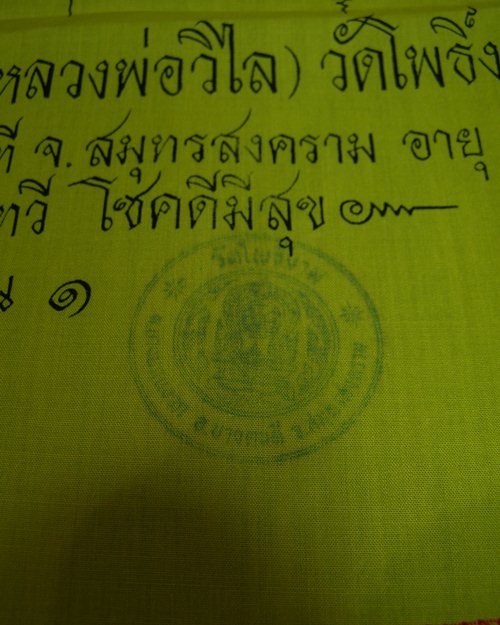 หลวงพ่อวิไล) วัดโพธิ์ง
ที จ. สมุทรสงคราม อายุ
ทวี โชคดีมีสุข ๛
น ๑
วัดโพธิ์งาม
อ.บางคนที จ.สมุทรสงคราม